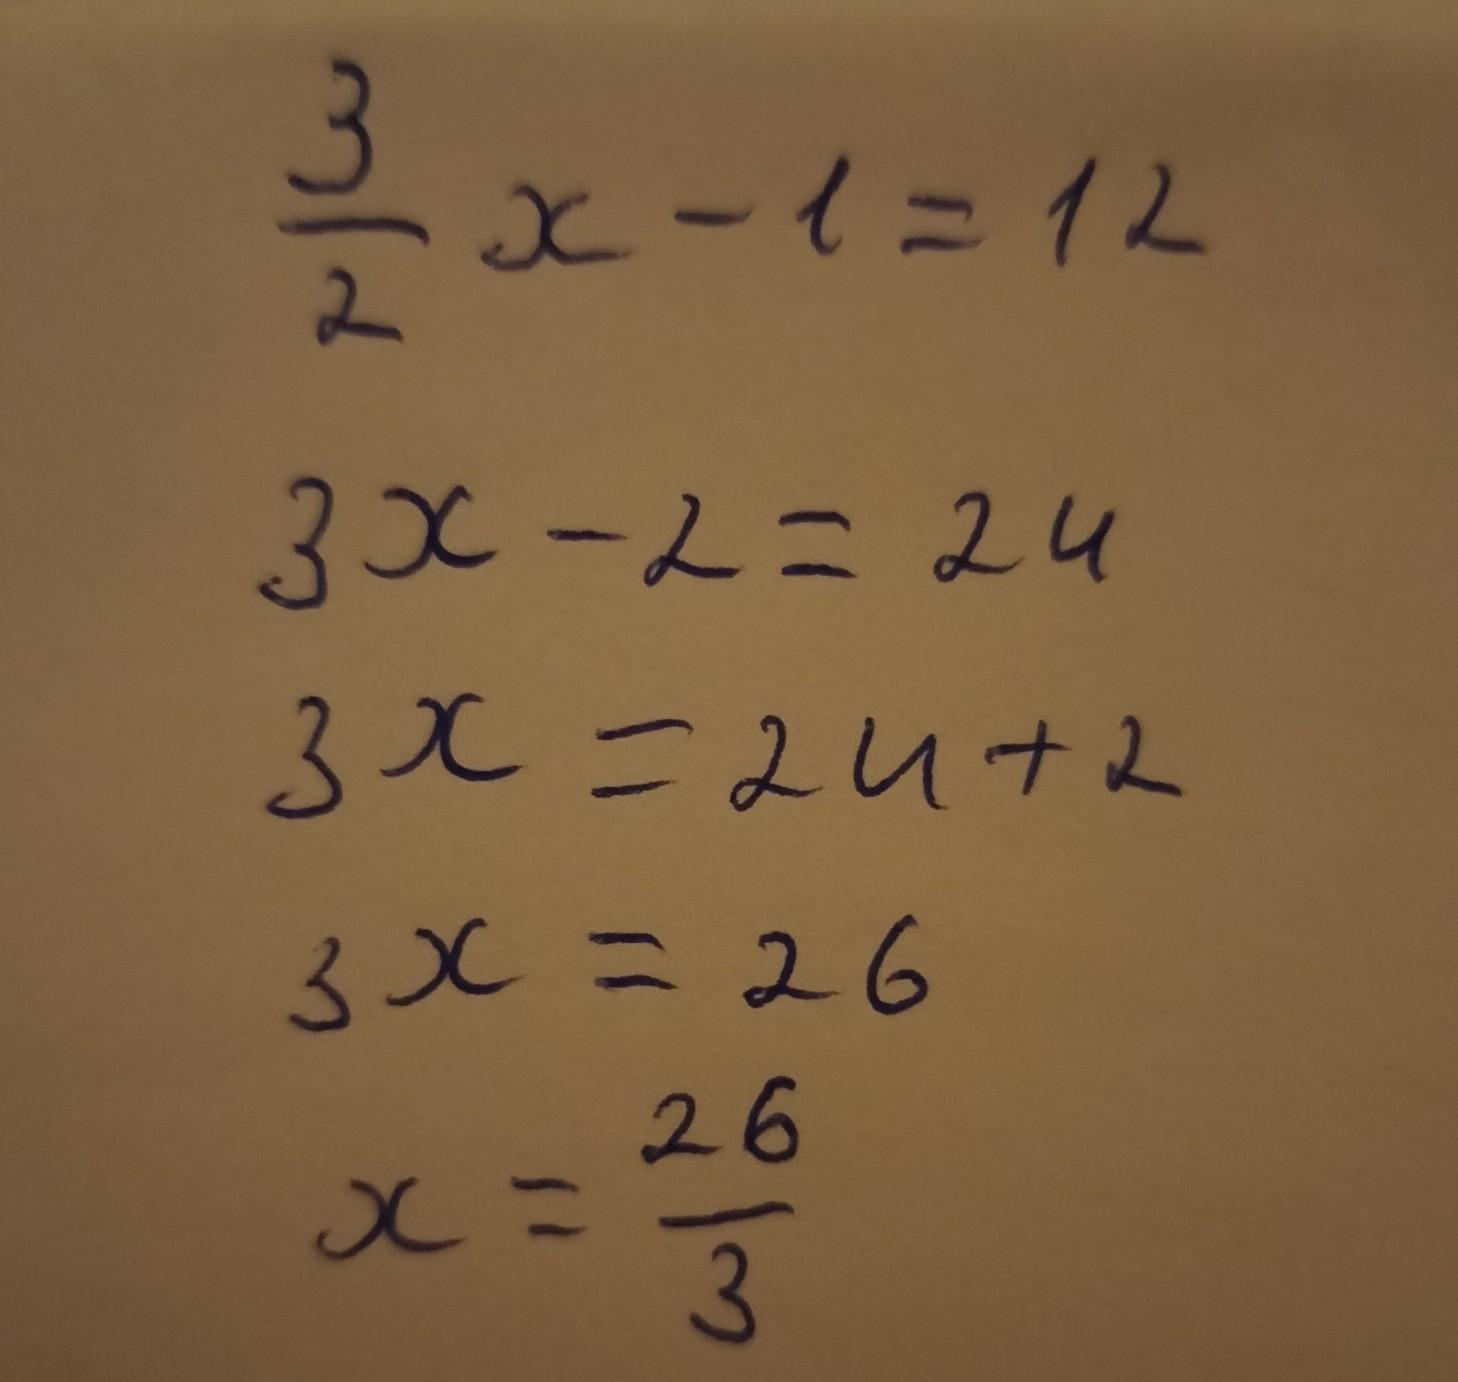 3/2 x - 1 = 12
3x - 2 = 24
3x = 24 + 2
3x = 26
x = 26/3